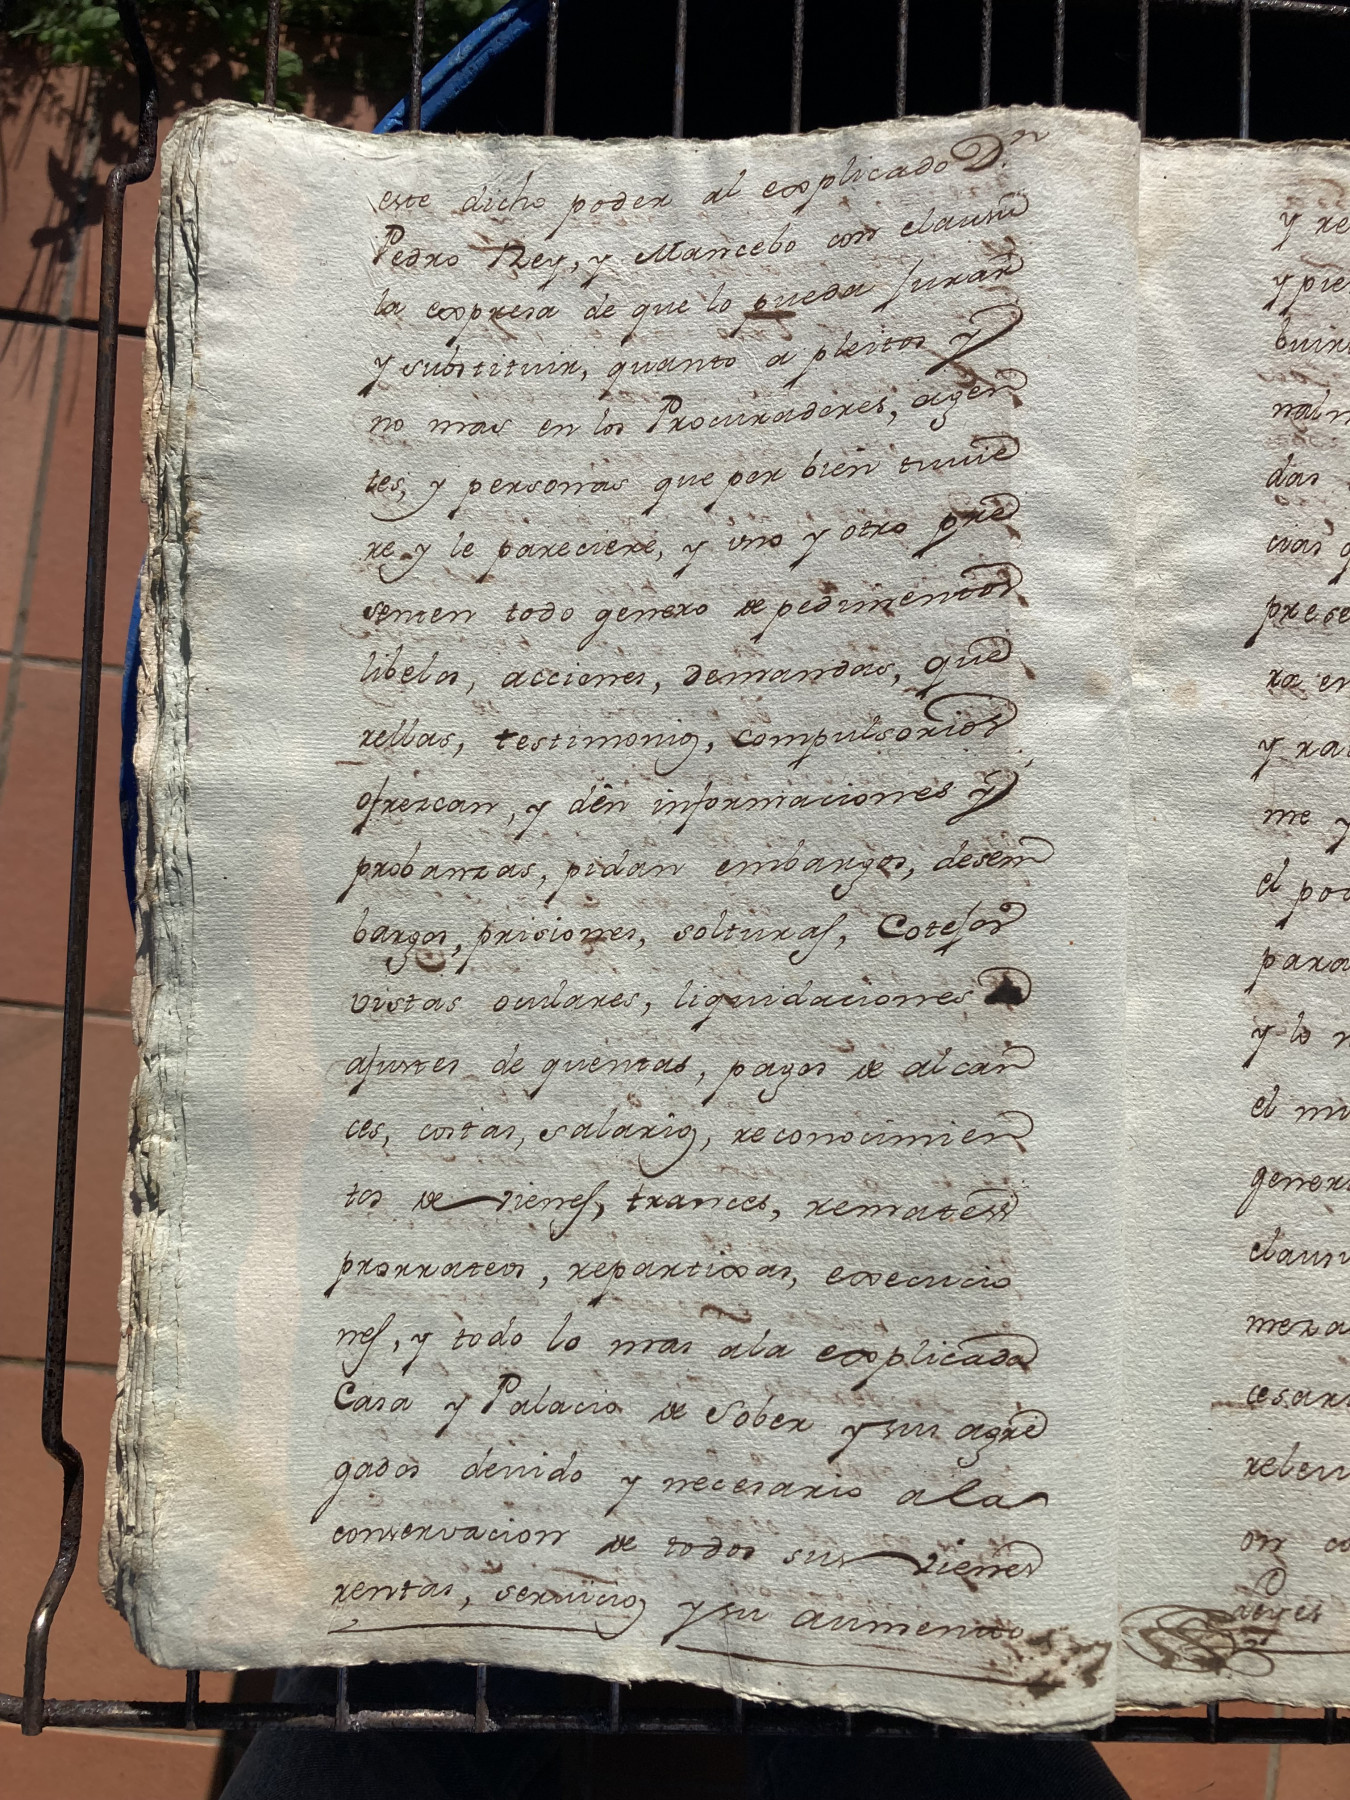 este dicho poder al explicado Dn
Pedro Rey, y Mancebo con clausu
la expresa de que lo pueda jurar
y substituir, quanto a pleitos y
no mas en los Procuradores, agen
tes, y personas que por bien tuuie
re y le pareciere, y uno y otro pre
senten todo genero de pedimentos
libelos, acciones, demandas, que
rellas, testimonios, compulsorios
ofrezcan, y dên informaciones y
probanzas, pidan embargos, desem
bargos, prisiones, solturas, Cotejos
vistas oculares, liquidaciones
ajustes de quentas, pagos de alcan
ces, costas, salarios, reconocimien
tos de vienes, trances, remates
prorrateos, repartixas, execucio
nes, y todo lo mas ala explicada
Casa y Palacio de Sober y sus agre
gados deuido y necesario a la
conservacion de todos sus vienes
rentas, seruicios y su aumento
y re
y pie
buir
nal
das
cias q
prese
ra en
y ra
me y
el pod
para
y lo n
el mi
gener
claus
mera
cesar
releu
on co